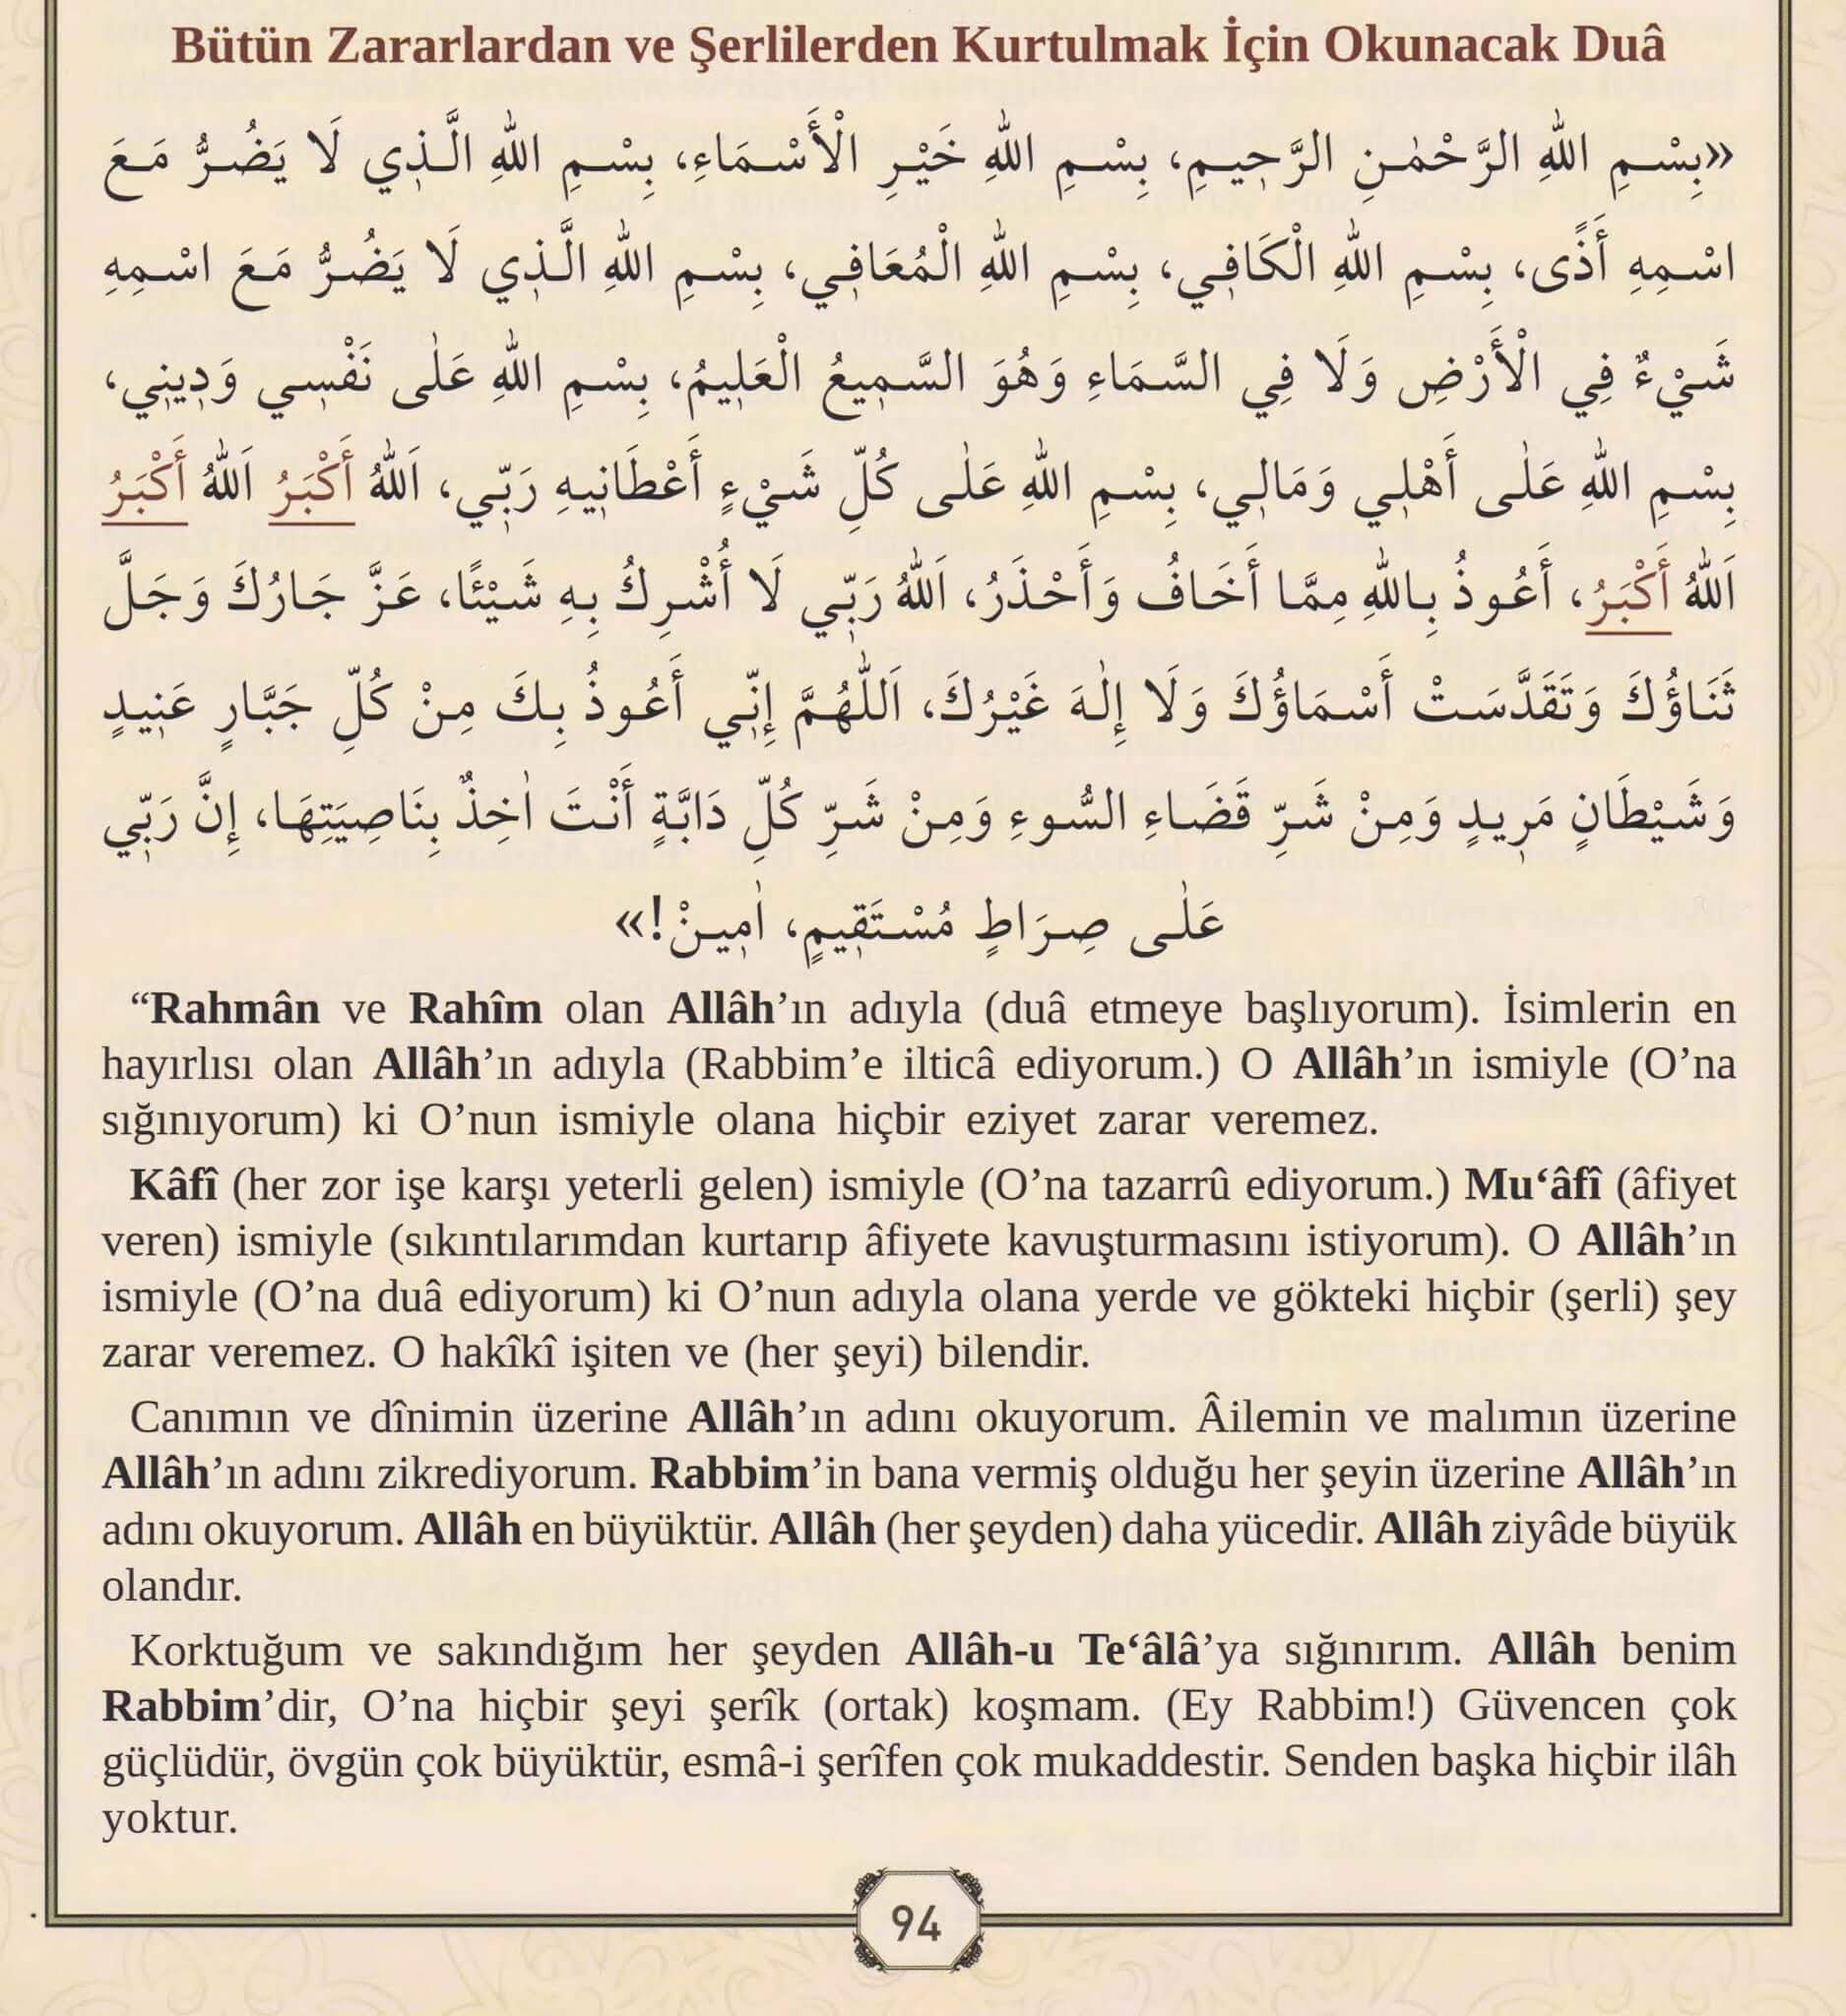 Bütün Zararlardan ve Şerlilerden Kurtulmak İçin Okunacak Duâ
«بِسْمِ اللّٰهِ الرَّحْمٰنِ الرَّحٖيمِ، بِسْمِ اللّٰهِ خَيْرِ الْأَسْمَاءِ، بِسْمِ اللّٰهِ الَّذٖي لَا يَضُرُّ مَعَ
اسْمِهِ أَذًى، بِسْمِ اللّٰهِ الْكَافٖي، بِسْمِ اللّٰهِ الْمُعَافٖي، بِسْمِ اللّٰهِ الَّذٖي لَا يَضُرُّ مَعَ اسْمِهِ
شَيْءٌ فِي الْأَرْضِ وَلَا فِي السَّمَاءِ وَهُوَ السَّمٖيعُ الْعَلٖيمُ، بِسْمِ اللّٰهِ عَلٰى نَفْسٖي وَدٖينٖي،
بِسْمِ اللّٰهِ عَلٰى أَهْلٖي وَمَالٖي، بِسْمِ اللّٰهِ عَلٰى كُلِّ شَيْءٍ أَعْطَانٖيهِ رَبّٖي، اَللّٰهُ أَكْبَرُ اَللّٰهُ أَكْبَرُ
اَللّٰهُ أَكْبَرُ، أَعُوذُ بِاللّٰهِ مِمَّا أَخَافُ وَأَحْذَرُ، اَللّٰهُ رَبّٖي لَا أُشْرِكُ بِهِ شَيْئًا، عَزَّ جَارُكَ وَجَلَّ
ثَنَاؤُكَ وَتَقَدَّسَتْ أَسْمَاؤُكَ وَلَا إِلٰهَ غَيْرُكَ، اَللّٰهُمَّ إِنّٖي أَعُوذُ بِكَ مِنْ كُلِّ جَبَّارٍ عَنٖيدٍ
وَشَيْطَانٍ مَرٖيدٍ وَمِنْ شَرِّ قَضَاءِ السُّوءِ وَمِنْ شَرِّ كُلِّ دَابَّةٍ أَنْتَ اٰخِذٌ بِنَاصِيَتِهَا، إِنَّ رَبّٖي
عَلٰى صِرَاطٍ مُسْتَقٖيمٍ، اٰمٖينْ!»
“Rahmân ve Rahîm olan Allâh’ın adıyla (duâ etmeye başlıyorum). İsimlerin en
hayırlısı olan Allâh’ın adıyla (Rabbim’e ilticâ ediyorum.) O Allâh’ın ismiyle (O’na
sığınıyorum) ki O’nun ismiyle olana hiçbir eziyet zarar veremez.
Kâfî (her zor işe karşı yeterli gelen) ismiyle (O’na tazarrû ediyorum.) Mu‘âfî (âfiyet
veren) ismiyle (sıkıntılarımdan kurtarıp âfiyete kavuşturmasını istiyorum). O Allâh’ın
ismiyle (O’na duâ ediyorum) ki O’nun adıyla olana yerde ve gökteki hiçbir (şerli) şey
zarar veremez. O hakîkî işiten ve (her şeyi) bilendir.
Canımın ve dînimin üzerine Allâh’ın adını okuyorum. Âilemin ve malımın üzerine
Allâh’ın adını zikrediyorum. Rabbim’in bana vermiş olduğu her şeyin üzerine Allâh’ın
adını okuyorum. Allâh en büyüktür. Allâh (her şeyden) daha yücedir. Allâh ziyâde büyük
olandır.
Korktuğum ve sakındığım her şeyden Allâh-u Te‘âlâ’ya sığınırım. Allâh benim
Rabbim’dir, O’na hiçbir şeyi şerîk (ortak) koşmam. (Ey Rabbim!) Güvencen çok
güçlüdür, övgün çok büyüktür, esmâ-i şerîfen çok mukaddestir. Senden başka hiçbir ilâh
yoktur.
94